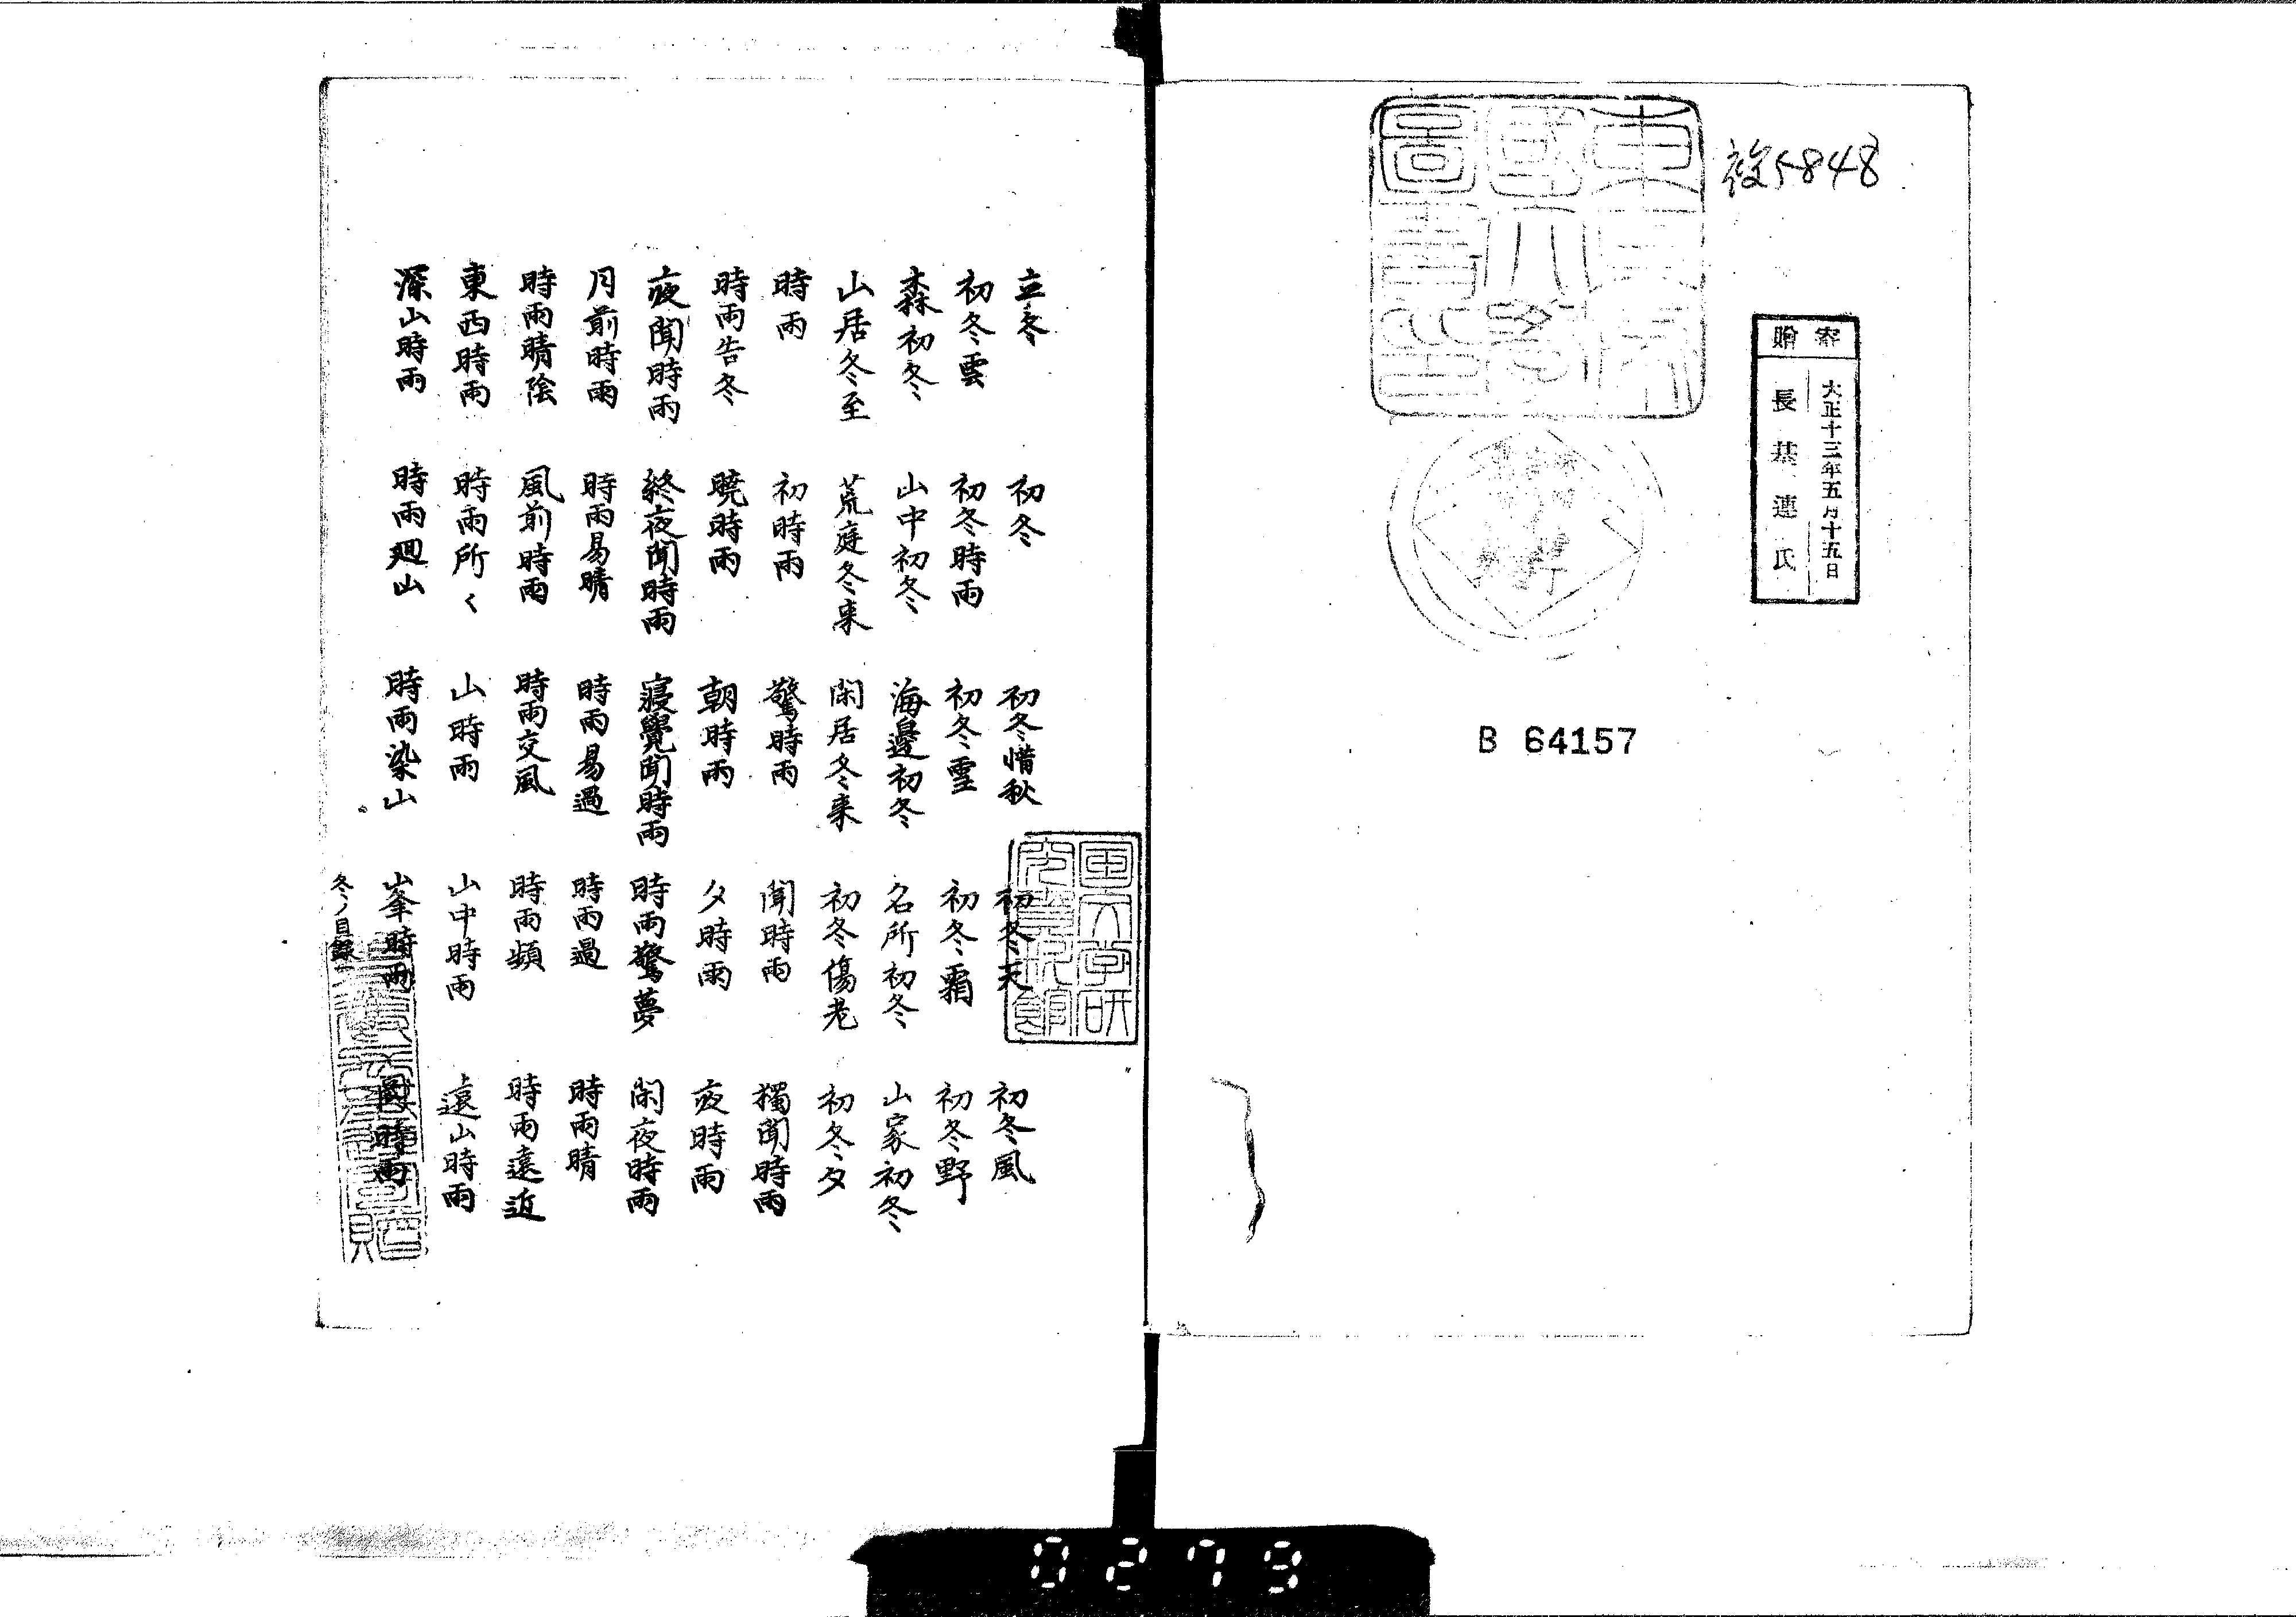 複5848
寄贈
大正十三年五月十五日
長基連氏
東京帝國大學圖書印
B 64157
立冬 初冬 初冬惜秋 初冬天 初冬風
初冬雲 初冬時雨 初冬雪 初冬霜 初冬野
森初冬 山中初冬 海邊初冬 名所初冬 山家初冬
山居冬至 荒庭冬来 閑居冬来 初冬傷老 初冬夕
時雨 初時雨 驚時雨 聞時雨 獨聞時雨
時雨告冬 暁時雨 朝時雨 夕時雨 夜時雨
夜聞時雨 終夜聞時雨 寝覺聞時雨 時雨驚夢 閑夜時雨
月前時雨 時雨易晴 時雨易過 時雨過 時雨晴
時雨晴陰 風前時雨 時雨交風 時雨頻 時雨遠近
東西時雨 時雨所く 山時雨 山中時雨 遠山時雨
深山時雨 時雨廻山 時雨染山 峯時雨 時雨
冬ノ目録一
0279